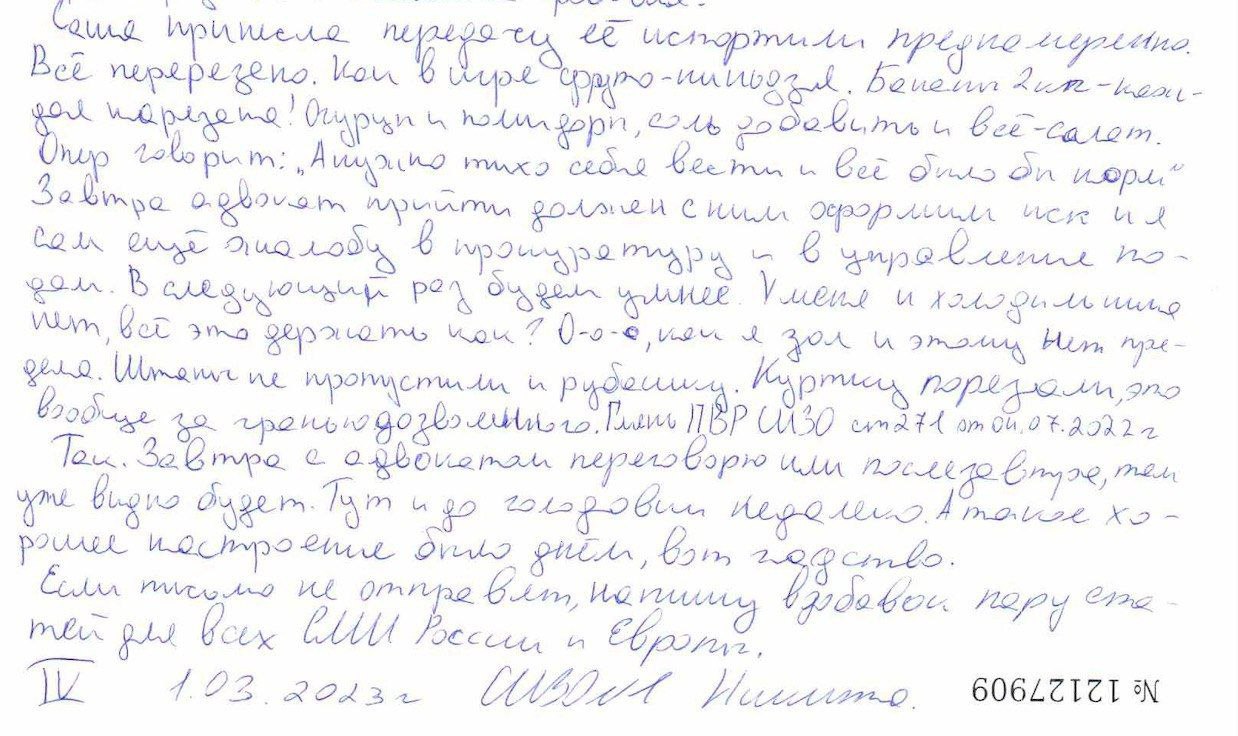 Саша принесла передачу её испортили преднамеренно.
Всё перерезено. Как в игре фруто-ниндзя. Бананы 2 кг-каж-
дая нарезана! Огурцы и помидоры, соль добавить и всё-салат.
Опер говорит: „А нужно тихо себя вести и всё было бы норм"
Завтра адвокат прийти должен с ним оформим иск и я
сам ещё жалобу в прокуратуру и в управление по-
дам. В следующий раз будем умнее. У меня и холодильника
нет, всё это держать как? О-о-о, как я зол и этому нет пре-
дела. Штаны не пропустили и рубашку. Куртку порезали, это
вообще за гранью дозволенного. Глянь ПВР СИЗО ст 271 от 04.07.2022 г
Так. Завтра с адвокатом переговорю или послезавтра, там
уже видно будет. Тут и до голодовки недалеко. А такое хо-
рошее настроение было днём, вот гадство.
Если письмо не отправят, напишу вдобавок пару ста-
тей для всех СМИ России и Европы.
IV 1.03.2023 г СИЗО №1 Никита.
№ 12127909